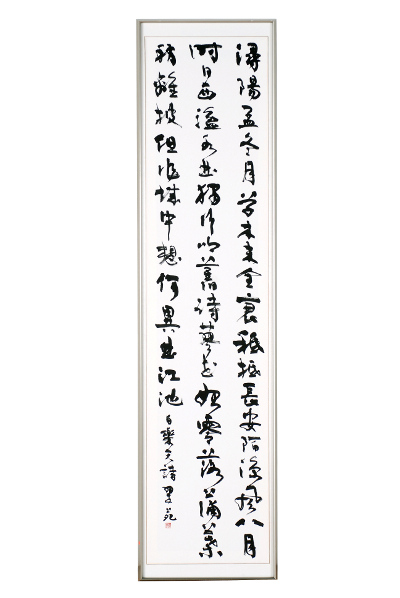 潯陽孟冬月草木未全衰祇抵長安陌涼風八月
時日西湓水曲獨行吟舊詩蓼花始零落蒲葉
稍離披但作城中想何異曲江池 白樂天詩